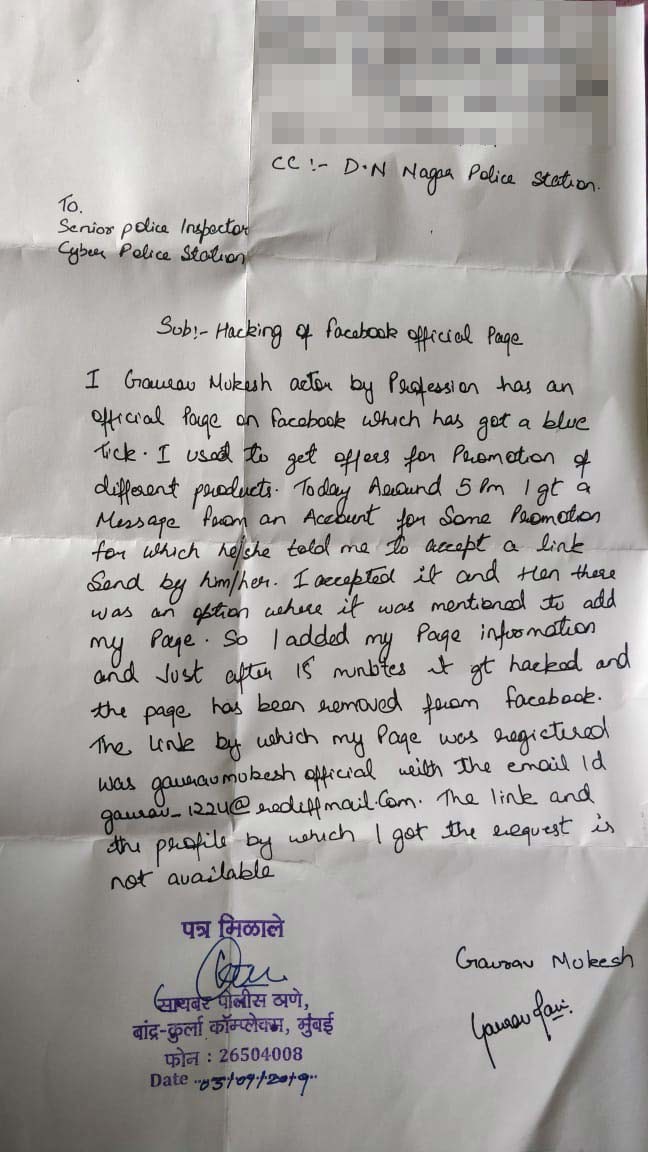 CC :- D.N Nagar Police Station.
To.
Senior police Inspector
Cyber Police Station
Sub:- Hacking of Facebook official Page
I Gaurav Mukesh actor by Profession has an
official Page on facebook which has got a blue
Tick. I used to get offers for Promotion of
different products. Today Around 5 Pm I gt a
Message from an Account for Some Promotion
for which he/she told me to accept a link
Send by him/her. I accepted it and then there
was an option where it was mentioned to add
my Page. So I added my Page information
and Just after 15 minutes it gt hacked and
the page has been removed from facebook.
The link by which my Page was registured
was gauravmukesh official with The email Id
gaurav_1224@rediffmail.Com. The link and
the profile by which I got the request is
not available
पत्र मिळाले
सायबर पोलीस ठाणे,
बांद्रा-कुर्ला कॉम्प्लेक्स, मुंबई
फोन : 26504008
Date 03/09/2019
Gaurav Mukesh